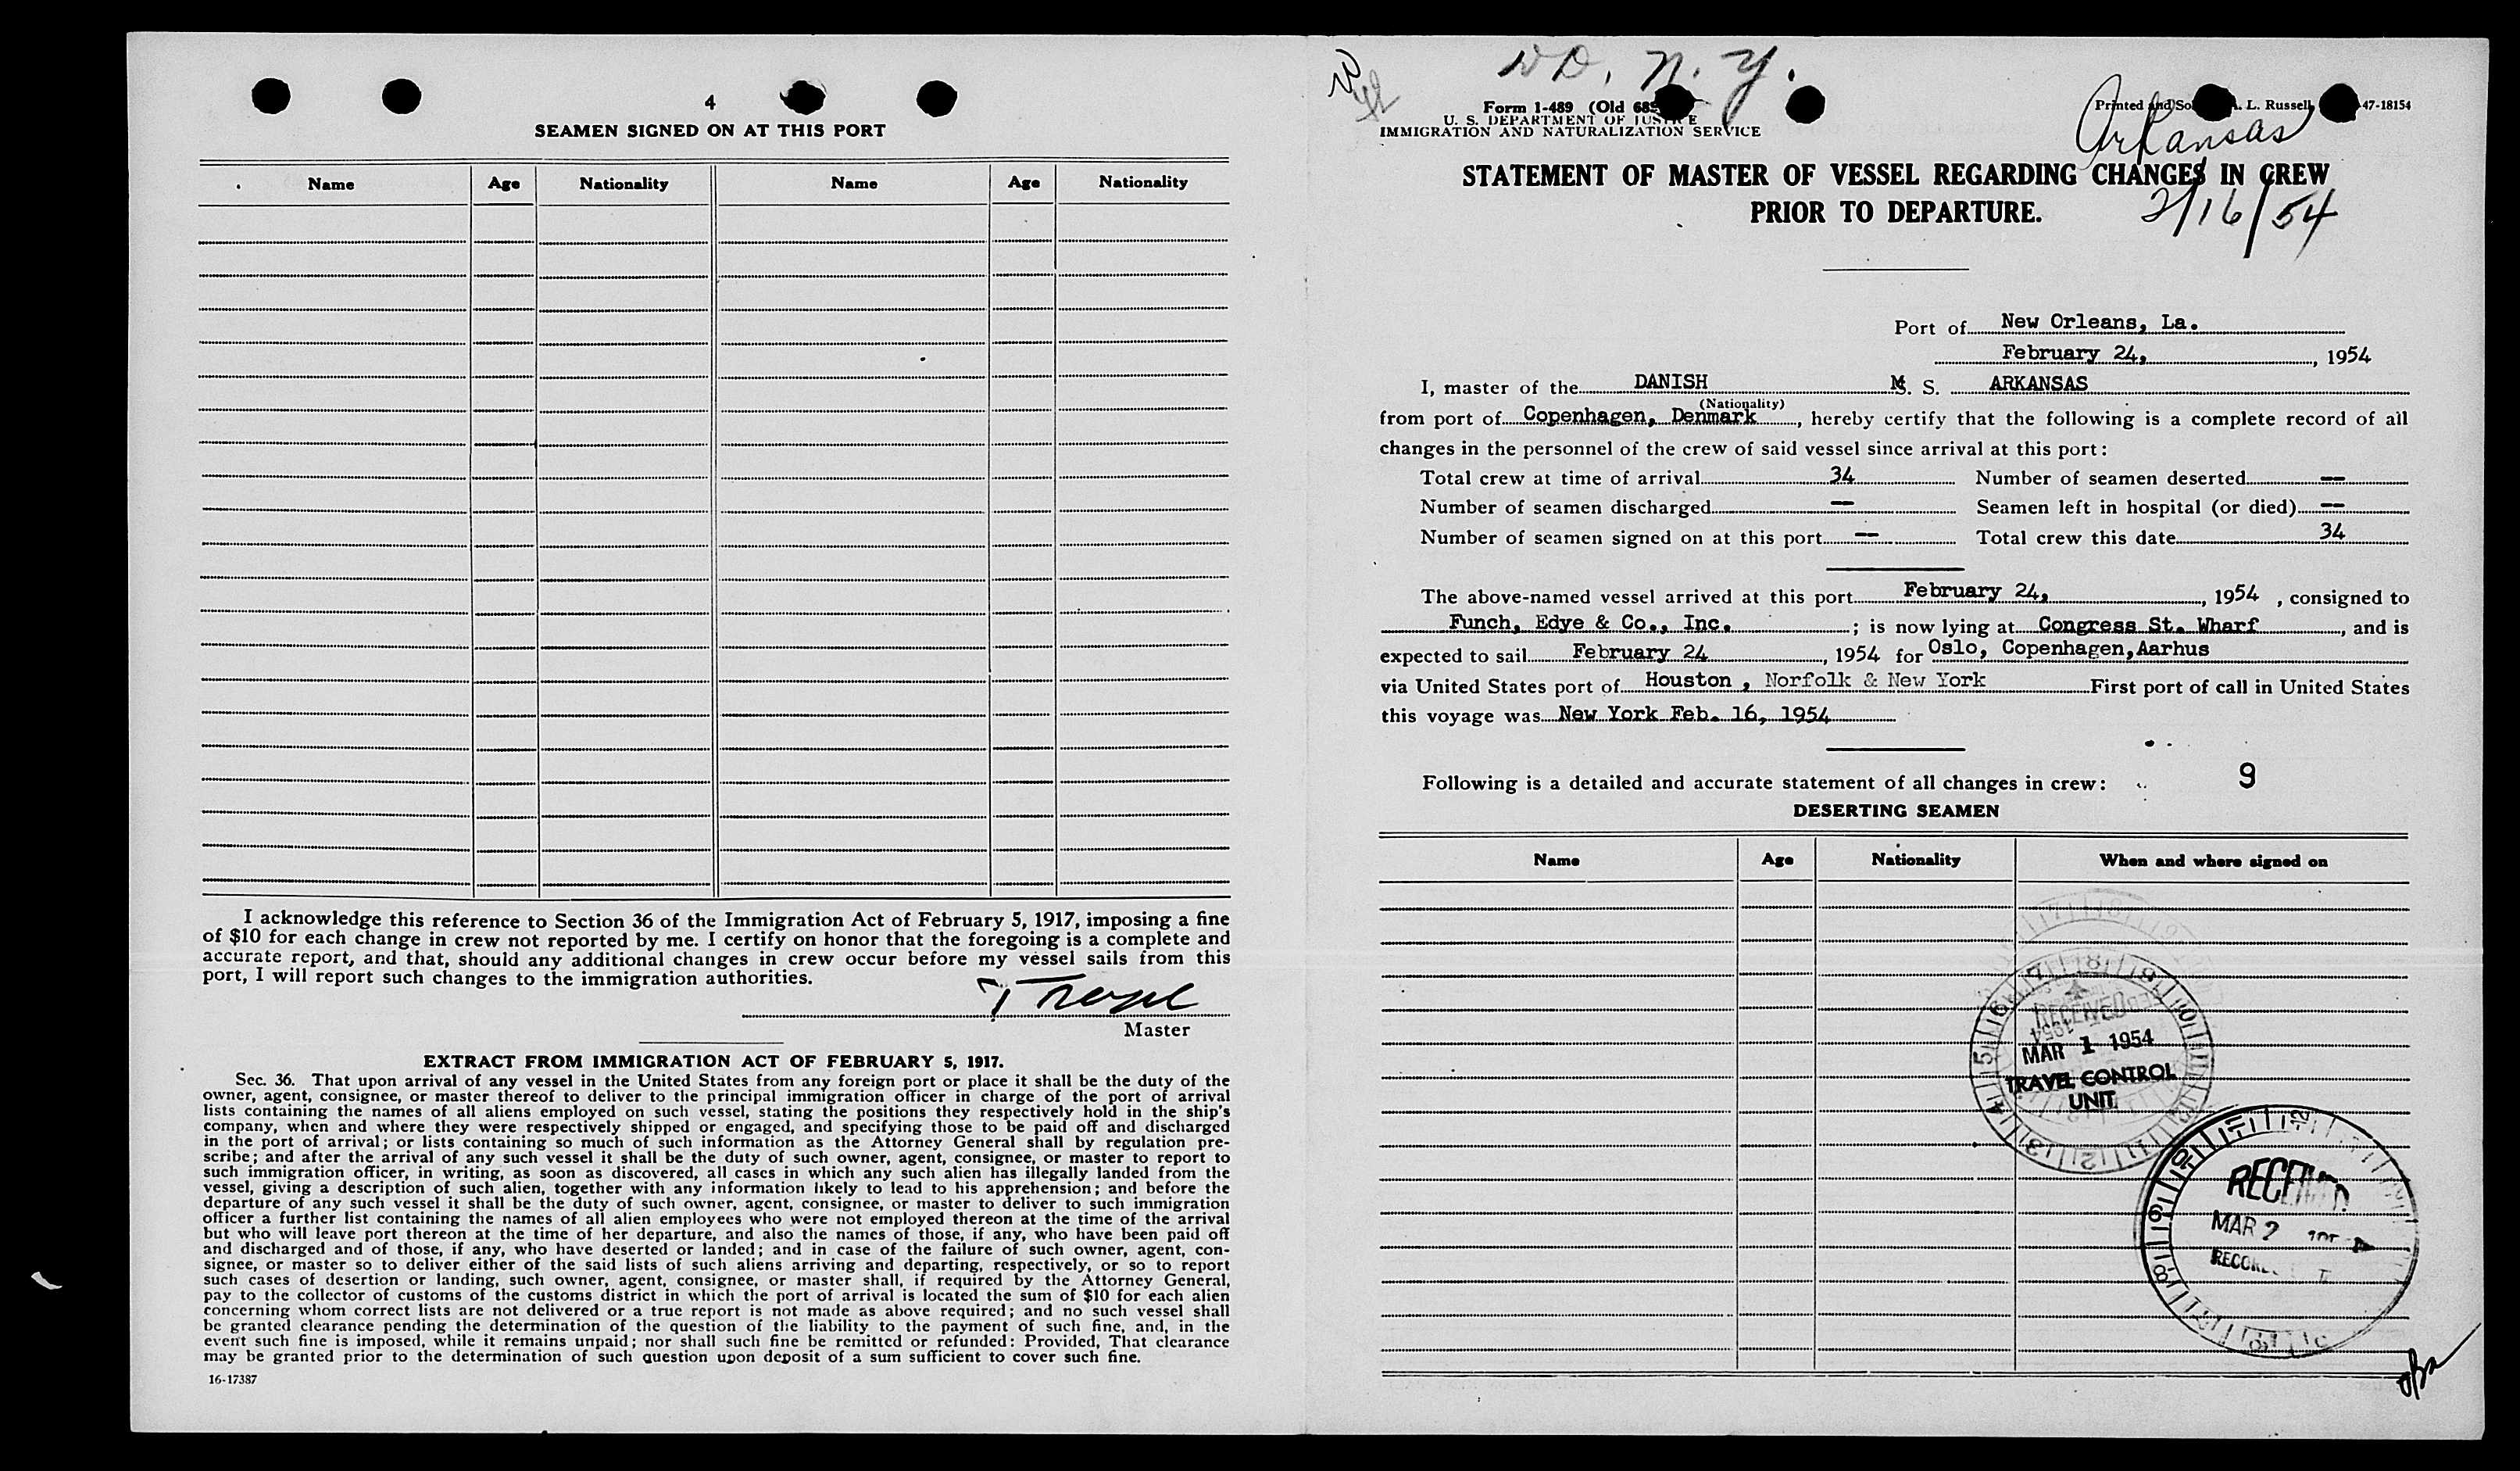 4
SEAMEN SIGNED ON AT THIS PORT
Name Age Nationality Name Age Nationality
I acknowledge this reference to Section 36 of the Immigration Act of February 5, 1917, imposing a fine
of $10 for each change in crew not reported by me. I certify on honor that the foregoing is a complete and
accurate report, and that, should any additional changes in crew occur before my vessel sails from this
port, I will report such changes to the immigration authorities.
Master
EXTRACT FROM IMMIGRATION ACT OF FEBRUARY 5, 1917.
Sec. 36. That upon arrival of any vessel in the United States from any foreign port or place it shall be the duty of the
owner, agent, consignee, or master thereof to deliver to the principal immigration officer in charge of the port of arrival
lists containing the names of all aliens employed on such vessel, stating the positions they respectively hold in the ship's
company, when and where they were respectively shipped or engaged, and specifying those to be paid off and discharged
in the port of arrival; or lists containing so much of such information as the Attorney General shall by regulation pre-
scribe; and after the arrival of any such vessel it shall be the duty of such owner, agent, consignee, or master to report to
such immigration officer, in writing, as soon as discovered, all cases in which any such alien has illegally landed from the
vessel, giving a description of such alien, together with any information likely to lead to his apprehension; and before the
departure of any such vessel it shall be the duty of such owner, agent, consignee, or master to deliver to such immigration
officer a further list containing the names of all alien employees who were not employed thereon at the time of the arrival
but who will leave port thereon at the time of her departure, and also the names of those, if any, who have been paid off
and discharged and of those, if any, who have deserted or landed; and in case of the failure of such owner, agent, con-
signee, or master so to deliver either of the said lists of such aliens arriving and departing, respectively, or so to report
such cases of desertion or landing, such owner, agent, consignee, or master shall, if required by the Attorney General,
pay to the collector of customs of the customs district in which the port of arrival is located the sum of $10 for each alien
concerning whom correct lists are not delivered or a true report is not made as above required; and no such vessel shall
be granted clearance pending the determination of the question of the liability to the payment of such fine, and, in the
event such fine is imposed, while it remains unpaid; nor shall such fine be remitted or refunded: Provided, That clearance
may be granted prior to the determination of such question upon deposit of a sum sufficient to cover such fine.
16-17387
N. Y.
Form 1-489 (Old 68
U. S. DEPARTMENT OF JUSTICE
IMMIGRATION AND NATURALIZATION SERVICE
Printed and So L. Russell 47-18154
Arkansas
STATEMENT OF MASTER OF VESSEL REGARDING CHANGES IN CREW
PRIOR TO DEPARTURE.
2/16/54
Port of New Orleans, La.
February 24, , 1954
I, master of the DANISH M. S. ARKANSAS
(Nationality)
from port of Copenhagen, Denmark , hereby certify that the following is a complete record of all
changes in the personnel of the crew of said vessel since arrival at this port:
Total crew at time of arrival 34 Number of seamen deserted --
Number of seamen discharged -- Seamen left in hospital (or died) --
Number of seamen signed on at this port -- Total crew this date 34
The above-named vessel arrived at this port February 24, , 1954 , consigned to
Funch, Edye & Co., Inc. ; is now lying at Congress St. Wharf , and is
expected to sail February 24 , 1954 for Oslo, Copenhagen, Aarhus
via United States port of Houston , Norfolk & New York First port of call in United States
this voyage was New York Feb. 16, 1954
Following is a detailed and accurate statement of all changes in crew: 9
DESERTING SEAMEN
Name Age Nationality When and where signed on
RECEIVED
MAR 1 1954
TRAVEL CONTROL
UNIT
RECEIVED
MAR 2